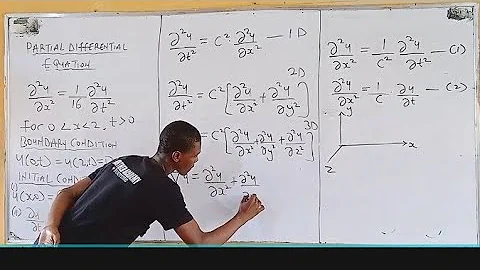 PARTIAL DIFFERENTIAL
EQUATION
∂²y/∂x² = 1/16 ∂²y/∂t²
for 0 < x < 2, t > 0
BOUNDARY CONDITION
y(0,t) = y(2,t) =
INITIAL COND
(i)
y(x,0) =
(ii) ∂y/∂t
∂²y/∂t² = C² ∂²y/∂x² — 1D
2D
∂²y/∂t² = C² [∂²y/∂x² + ∂²y/∂y²]
3D
= C² [∂²y/∂x² + ∂²y/∂y² + ∂²y/∂z²]
= ∂²y/∂x² + ∂²y/∂
∂²y/∂x² = 1/C² ∂²y/∂t² — (1)
∂²y/∂x² = 1/C ∂y/∂t — (2)
y
x
z